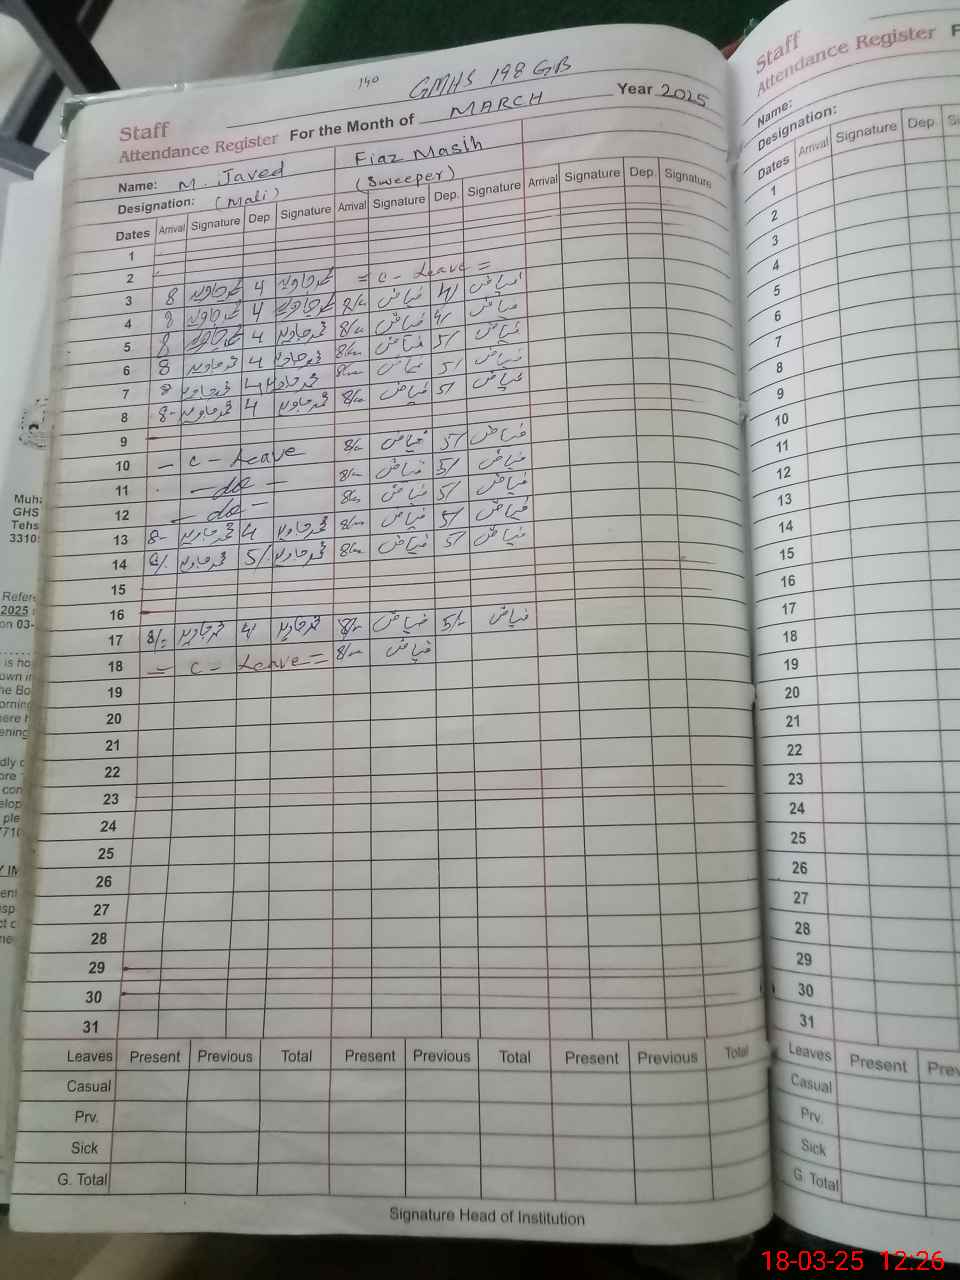 140 GMHS 198 GB
Staff
Attendance Register For the Month of MARCH Year 2025
Name: M. Javed Fiaz Masih
Designation: (Mali) (Sweeper)
Dates Arrival Signature Dep Signature Arrival Signature Dep. Signature Arrival Signature Dep. Signature
1
2
3 8 محمد جاوید 4 محمد جاوید = C - Leave =
4 8 محمد جاوید 4 محمد جاوید 8/- فیاض 4/ فیاض
5 8 محمد جاوید 4 محمد جاوید 8/- فیاض 4/ فیاض
6 8 محمد جاوید 4 محمد جاوید 8/- فیاض 5/ فیاض
7 8 محمد جاوید 4 محمد جاوید 8/- فیاض 5/ فیاض
8 8- محمد جاوید 4 محمد جاوید 8/- فیاض 5/ فیاض
9
10 - C - Leave 8/- فیاض 5/ فیاض
11 - do - 8/- فیاض 5/ فیاض
12 - do - 8/- فیاض 5/ فیاض
13 8- محمد جاوید 4 محمد جاوید 8/- فیاض 5/ فیاض
14 محمد جاوید 5/ محمد جاوید 8/- فیاض 5/ فیاض
15
16
17 8/- محمد جاوید 4 محمد جاوید 8/- فیاض 5/- فیاض
18 - C - Leave = 8/- فیاض
19
20
21
22
23
24
25
26
27
28
29
30
31
Leaves Present Previous Total Present Previous Total Present Previous Total
Casual
Prv.
Sick
G. Total
Signature Head of Institution
Staff
Attendance Register F
Name:
Designation:
Dates Arrival Signature Dep. Signature
1
2
3
4
5
6
7
8
9
10
11
12
13
14
15
16
17
18
19
20
21
22
23
24
25
26
27
28
29
30
31
Leaves Present Prev
Casual
Prv.
Sick
G. Total
Muha
GHS
Tehs
3310
Refere
2025
on 03-
is ho
own in
he Bo
orning
here h
ening
18-03-25 12:26